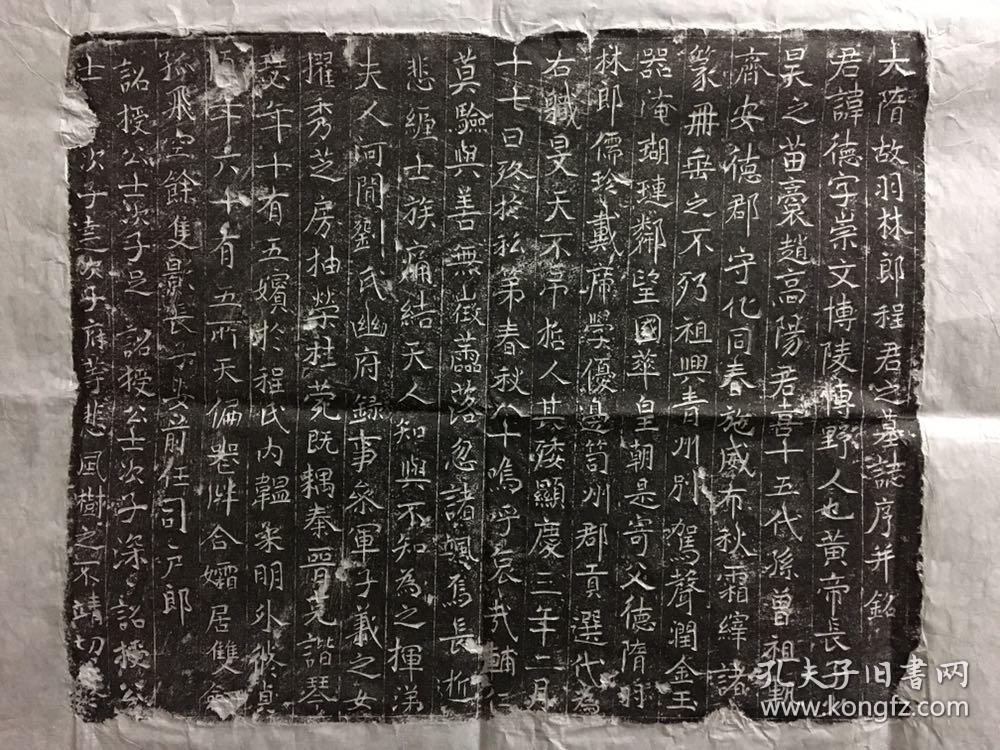 大隋故羽林郎程君之墓誌序并銘
君諱德字崇文博陵博野人也黃帝長
昊之苗裔趙高陽君喜十五代孫曾祖
齊安德郡守化同春施威布秋霜繹諸
篆冊垂之不朽祖興青州別駕聲潤金玉
器淹瑚璉鄰望國華皇朝是寄父德隋羽
林郎儒珍戴席學優邊笥州郡貢選代為
右職旻天不弔哲人其痿顯慶三年二月
十七日終於私第春秋八十嗚呼哀哉輔
莫驗與善無徵蕣落忽諸颯焉長逝
悲纏士族痛結天人知與不知為之揮涕
夫人河間劉氏幽府錄事參軍子義之女
擢秀芝房抽榮桂菀既耦秦晉克諧琴
瑟年十有五嬪於程氏內韞柔明外終貞
年六十有五所天偏喪胖合孀居雙
孤飛空餘隻影長子 前任司戶郎
詔授公士次子足 詔授公士次子深 詔授公
士 次子 次子府等悲風樹之不靖切
孔夫子旧书网
www.kongfz.com